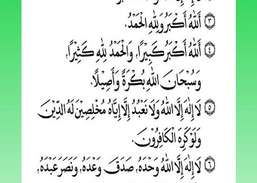 ٣ اَللهُ أَكْبَرُ وَلِلّٰهِ الْحَمْدُ.
٤ اَللهُ أَكْبَرُ كَبِيْرًا، وَالْحَمْدُ لِلّٰهِ كَثِيْرًا،
وَسُبْحَانَ اللهِ بُكْرَةً وَأَصِيْلًا.
٥ لَا إِلٰهَ إِلَّا اللهُ وَلَا نَعْبُدُ إِلَّا إِيَّاهُ مُخْلِصِيْنَ لَهُ الدِّيْنَ
وَلَوْكَرِهَ الْكَافِرُوْنَ.
٦ لَا إِلٰهَ إِلَّا اللهُ وَحْدَهُ، صَدَقَ وَعْدَهُ، وَنَصَرَ عَبْدَهُ،